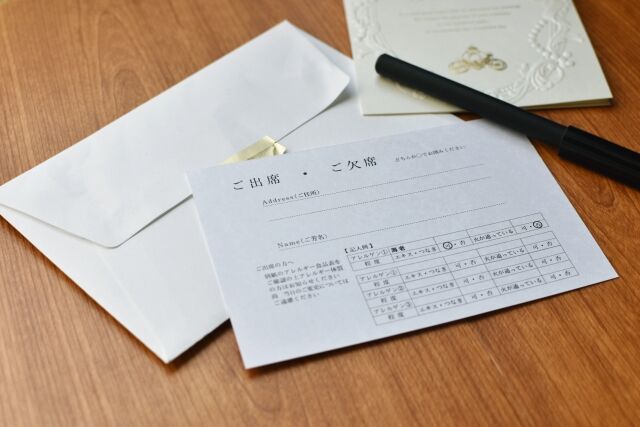 ご出席 ・ ご欠席 どちらか○でお囲みください
Address(ご住所)
Name(ご芳名)
ご出席の方へ
別紙のアレルギー食品表を
ご確認の上アレルギー体質
の方はお知らせください
尚 当日のご変更については
ご遠慮ください
【記入例】
アレルゲン① 海老
程度 エキス・つなぎ 可・否 火が通っている 可・否
アレルゲン①
程度 エキス・つなぎ 可・否 火が通っている 可・否
アレルゲン②
程度 エキス・つなぎ 可・否 火が通っている 可・否
アレルゲン③
程度 エキス・つなぎ 可・否 火が通っている 可・否